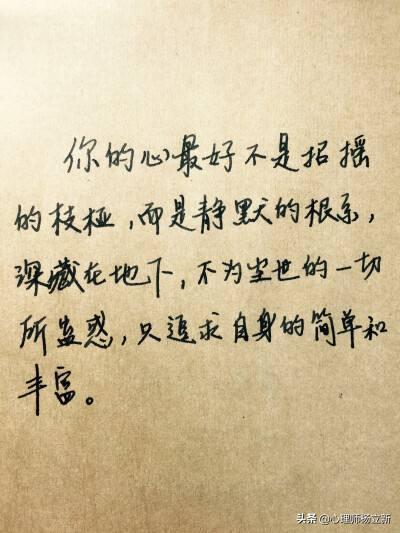 你的心最好不是招摇
的枝桠,而是静默的根系,
深藏在地下,不为尘世的一切
所蛊惑,只追求自身的简单和
丰富。
头条 @心理师杨立新